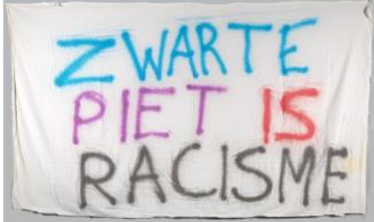 ZWARTE
PIET IS
RACISME